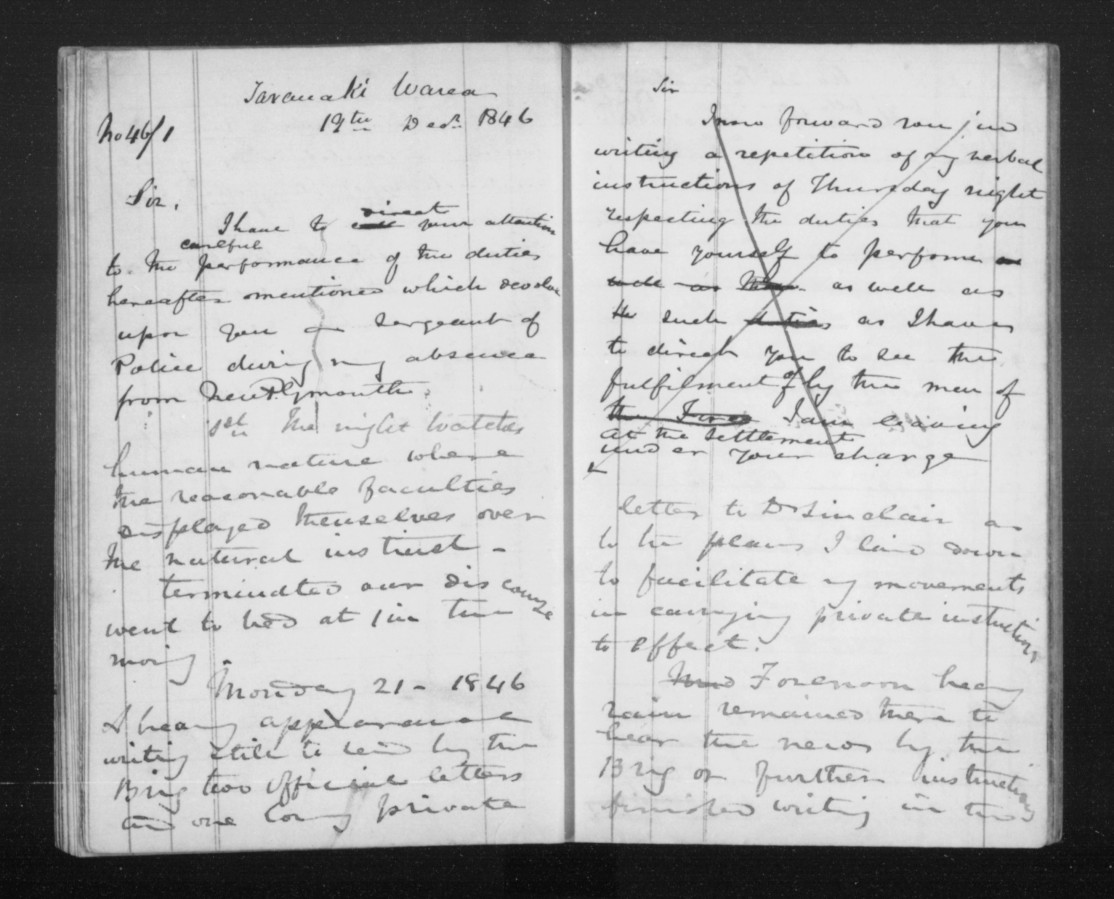 Taranaki Warea
19th Decr. 1846
No 46/1
Sir,
I have to direct your attention
careful
to the performance of the duties
hereafter mentioned which devolve
upon you as Sergeant of
Police during my absence
from New Plymouth.
1st The night Watches
human nature where
the reasonable faculties
displayed themselves over
the natural instinct -
terminated our discourse
went to bed at 1 in the
moing
Monday 21 - 1846
A heavy appearance
writing still to send by the
Brig two official letters
and one long private
Sir
I now forward you in
writing a repetition of my verbal
instructions of Thursday night
respecting the duties that you
have yourself to perform
as well as
such duties as I have
to direct you to see the
fulfilment of by the men of
the Force I am leaving
at the settlement
under your charge
letter to Dr Sinclair as
to the plans I laid down
to facilitate my movements
in carrying private instructions
to effect.
Forenoon heavy
rain remained there to
hear the news by the
Brig or further instructions
finished writing in the